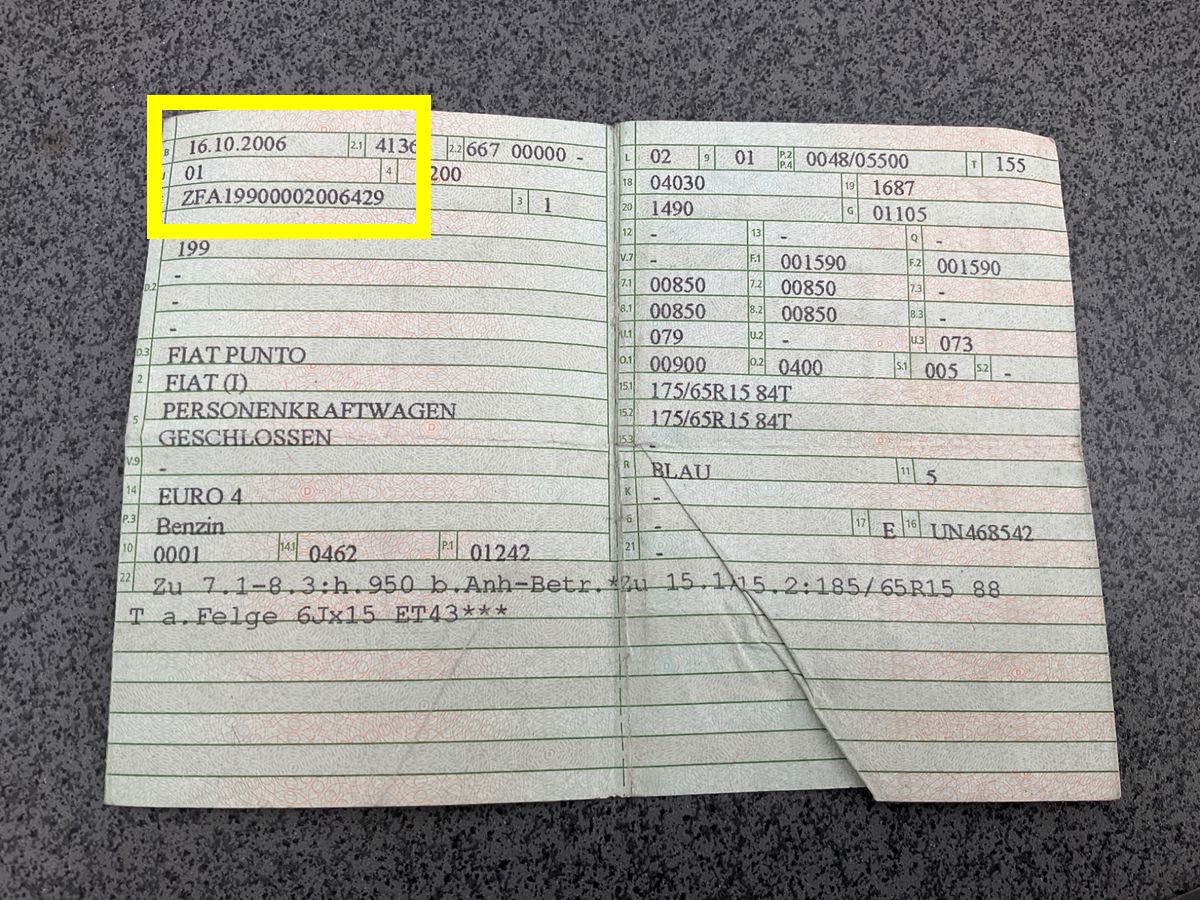 B 16.10.2006 2.1 4136 2.2 667 00000 -
J 01 4 200
ZFA19900002006429 3 1
199
D.2 -
-
-
D.3 FIAT PUNTO
2 FIAT (I)
5 PERSONENKRAFTWAGEN
GESCHLOSSEN
V.9 -
14 EURO 4
P.3 Benzin
10 0001 14.1 0462 P.1 01242
L 02 9 01 P.2 P.4 0048/05500 T 155
18 04030 19 1687
20 1490 G 01105
12 - 13 - Q -
V.7 - F.1 001590 F.2 001590
7.1 00850 7.2 00850 7.3 -
8.1 00850 8.2 00850 8.3 -
U.1 079 U.2 - U.3 073
O.1 00900 O.2 0400 S.1 005 S.2 -
15.1 175/65R15 84T
15.2 175/65R15 84T
15.3 -
R BLAU 11 5
K -
6 - 17 E 16 UN468542
21 -
22 Zu 7.1-8.3:h.950 b.Anh-Betr.*Zu 15.1/15.2:185/65R15 88
T a.Felge 6Jx15 ET43***